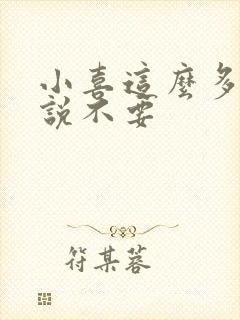 小喜這麼多
說不要
符某蓉